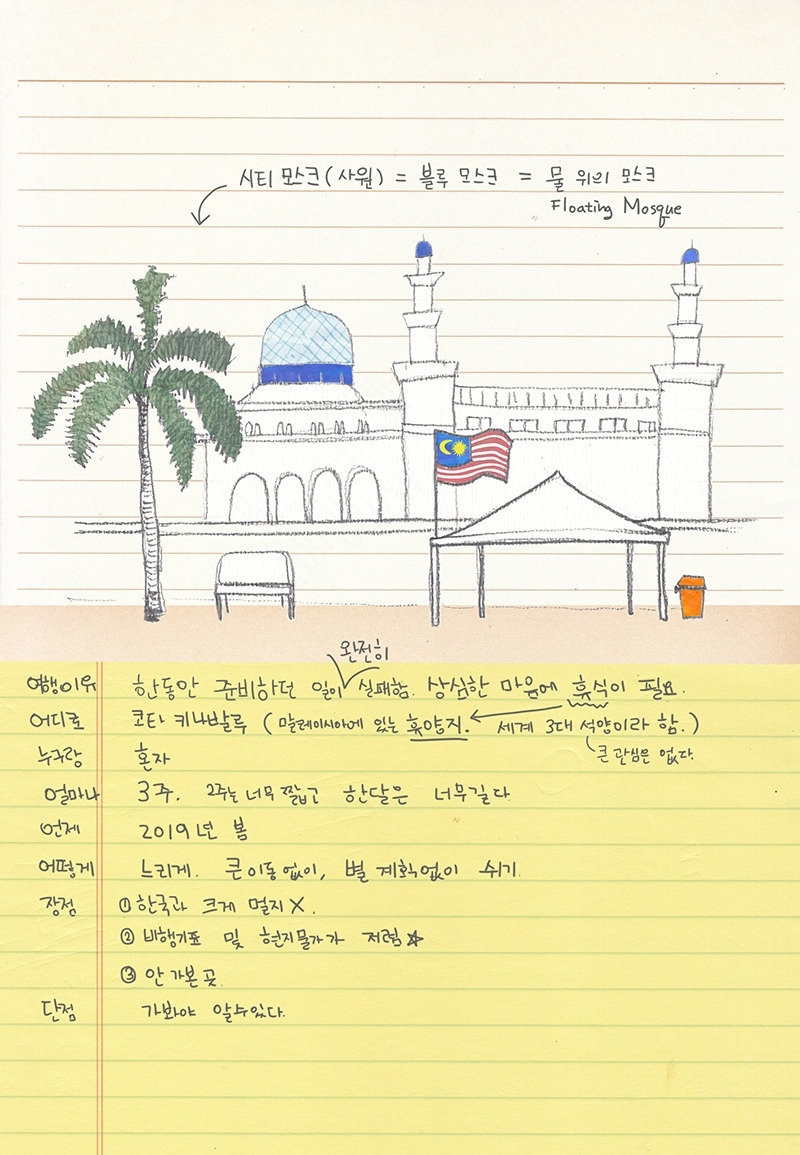 시티 모스크(사원) = 블루 모스크 = 물 위의 모스크
Floating Mosque
완전히
여행이유 한동안 준비하던 일이 실패함. 상심한 마음에 휴식이 필요.
어디로 코타 키나발루 (말레이시아에 있는 휴양지. 세계 3대 석양이라 함.)
큰 관심은 없다.
누구랑 혼자
얼마나 3주. 2주는 너무 짧고 한달은 너무길다.
언제 2019년 봄
어떻게 느리게. 큰 이동 없이, 별 계획없이 쉬기.
장점 ① 한국과 크게 멀지 X.
② 비행기표 및 현지물가가 저렴☆
③ 안 가본 곳.
단점 가봐야 알수있다.